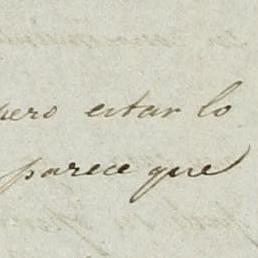 pero estar lo
parece que